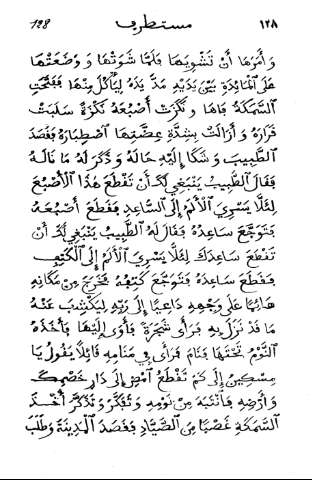 128 مستطرف ١٢٨
وَأَمَرَهَا أَنْ تَشْوِيَهَا فَلَمَّا شَوَتْهَا وَوَضَعَتْهَا
عَلَى ٱلْمَائِدَةِ بَيْنَ يَدَيْهِ مَدَّ يَدَهُ لِيَأْكُلَ مِنْهَا فَفَتَحَتِ
ٱلسَّمَكَةُ فَاهَا وَنَكَزَتْ أَصْبُعَهُ نَكْزَةً سَلَبَتْ
قَرَارَهُ وَأَزَالَتْ بِشِدَّةِ عَضَّتِهَا ٱصْطِبَارَهُ فَقَصَدَ
ٱلطَّبِيبَ وَشَكَا إِلَيْهِ حَالَهُ وَذَكَرَ لَهُ مَا نَالَهُ
فَقَالَ ٱلطَّبِيبُ يَنْبَغِي لَكَ أَنْ تَقْطَعَ هٰذَا ٱلْأَصْبُعَ
لِئَلَّا يَسْرِيَ ٱلْأَلَمُ إِلَى ٱلسَّاعِدِ فَقَطَعَ أَصْبُعَهُ
فَتَوَجَّعَ سَاعِدُهُ فَقَالَ لَهُ ٱلطَّبِيبُ يَنْبَغِي لَكَ أَنْ
تَقْطَعَ سَاعِدَكَ لِئَلَّا يَسْرِيَ ٱلْأَلَمُ إِلَى ٱلْكَتِفِ
فَقَطَعَ سَاعِدَهُ فَتَوَجَّعَ كَتِفُهُ فَخَرَجَ مِنْ مَكَانِهِ
هَائِمًا عَلَى وَجْهِهِ دَاعِيًا إِلَى رَبِّهِ لِيَكْشِفَ عَنْهُ
مَا قَدْ نَزَلَ بِهِ فَرَأَى شَجَرَةً فَأَوَى إِلَيْهَا فَأَخَذَهُ
ٱلنَّوْمُ تَحْتَهَا فَنَامَ فَرَأَى فِي مَنَامِهِ قَائِلًا يَقُولُ يَا
مِسْكِينُ إِلَى كَمْ تَقْطَعُ ٱمْضِ إِلَى دَارِ خَصْمِكَ
وَأَرْضِهِ فَٱنْتَبَهَ مِنْ نَوْمِهِ وَتَفَكَّرَ وَتَذَكَّرَ أَخْذَ
ٱلسَّمَكَةِ غَصْبًا مِنَ ٱلصَّيَّادِ فَقَصَدَ ٱلْمَدِينَةَ وَطَلَبَ